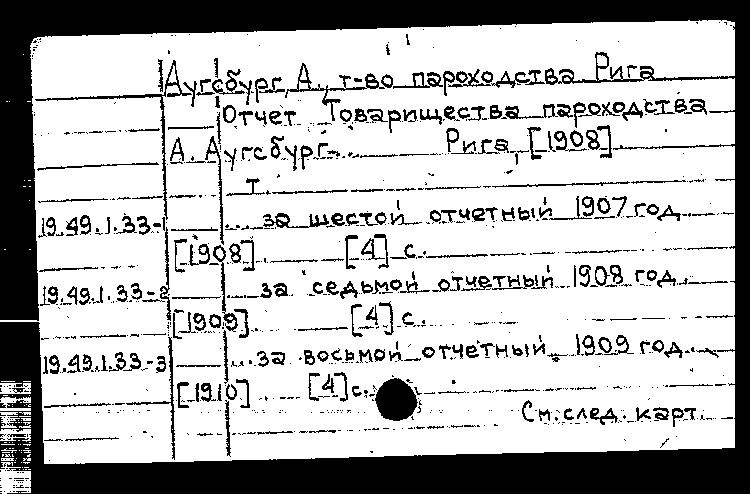 Аугсбург, А., т-во пароходства. Рига
Отчет Товарищества пароходства
А. Аугсбург... Рига, [1908].
т.
19.49.1.33-1 ... за шестой отчетный 1907 год.
[1908]. [4] с.
19.49.1.33-2 за седьмой отчетный 1908 год.
[1909]. [4] с.
19.49.1.33-3 ... за восьмой отчетный 1909 год.
[1910]. [4] с.
См. след. карт.